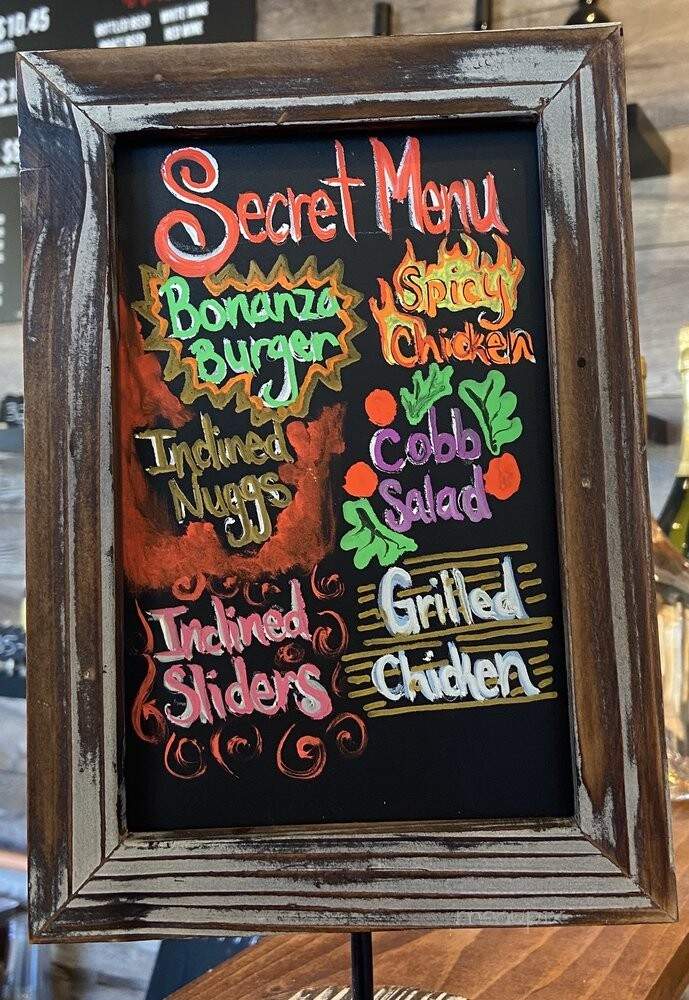 $10.45
BOTTLED BEER
WHITE WINE
RED WINE
Secret Menu
Bonanza
Burger
Spicy
Chicken
Inclined
Nuggs
Cobb
Salad
Inclined
Sliders
Grilled
Chicken